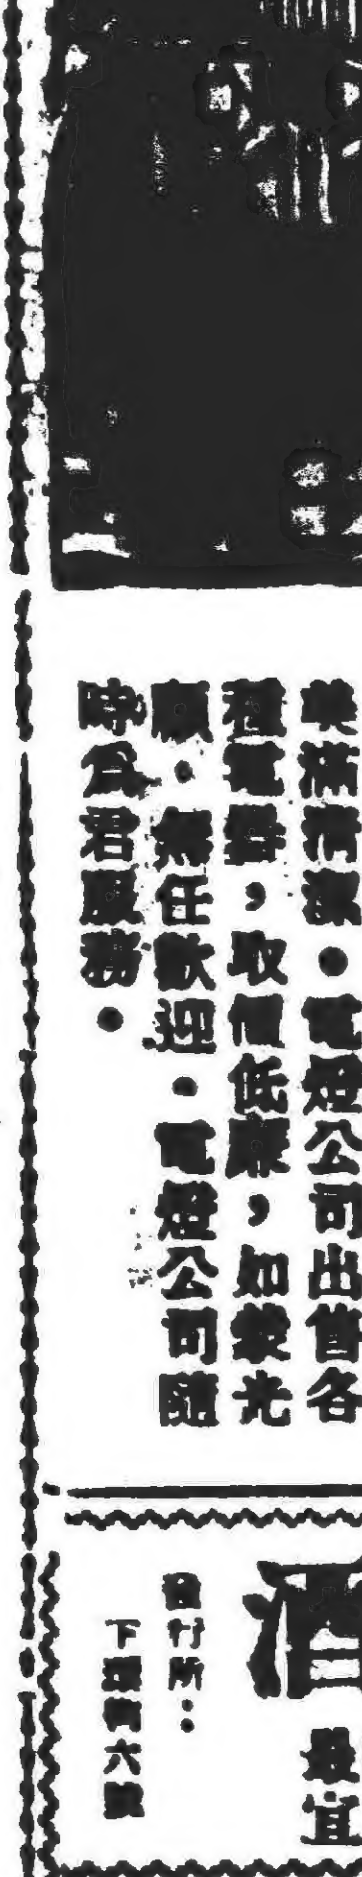 美滿清潔。電燈公司出售各
種電器，取價低廉，如蒙光
顧。無任歡迎。電燈公司隨
時為君服務。
酒
最宜
發行所：
下環街六號